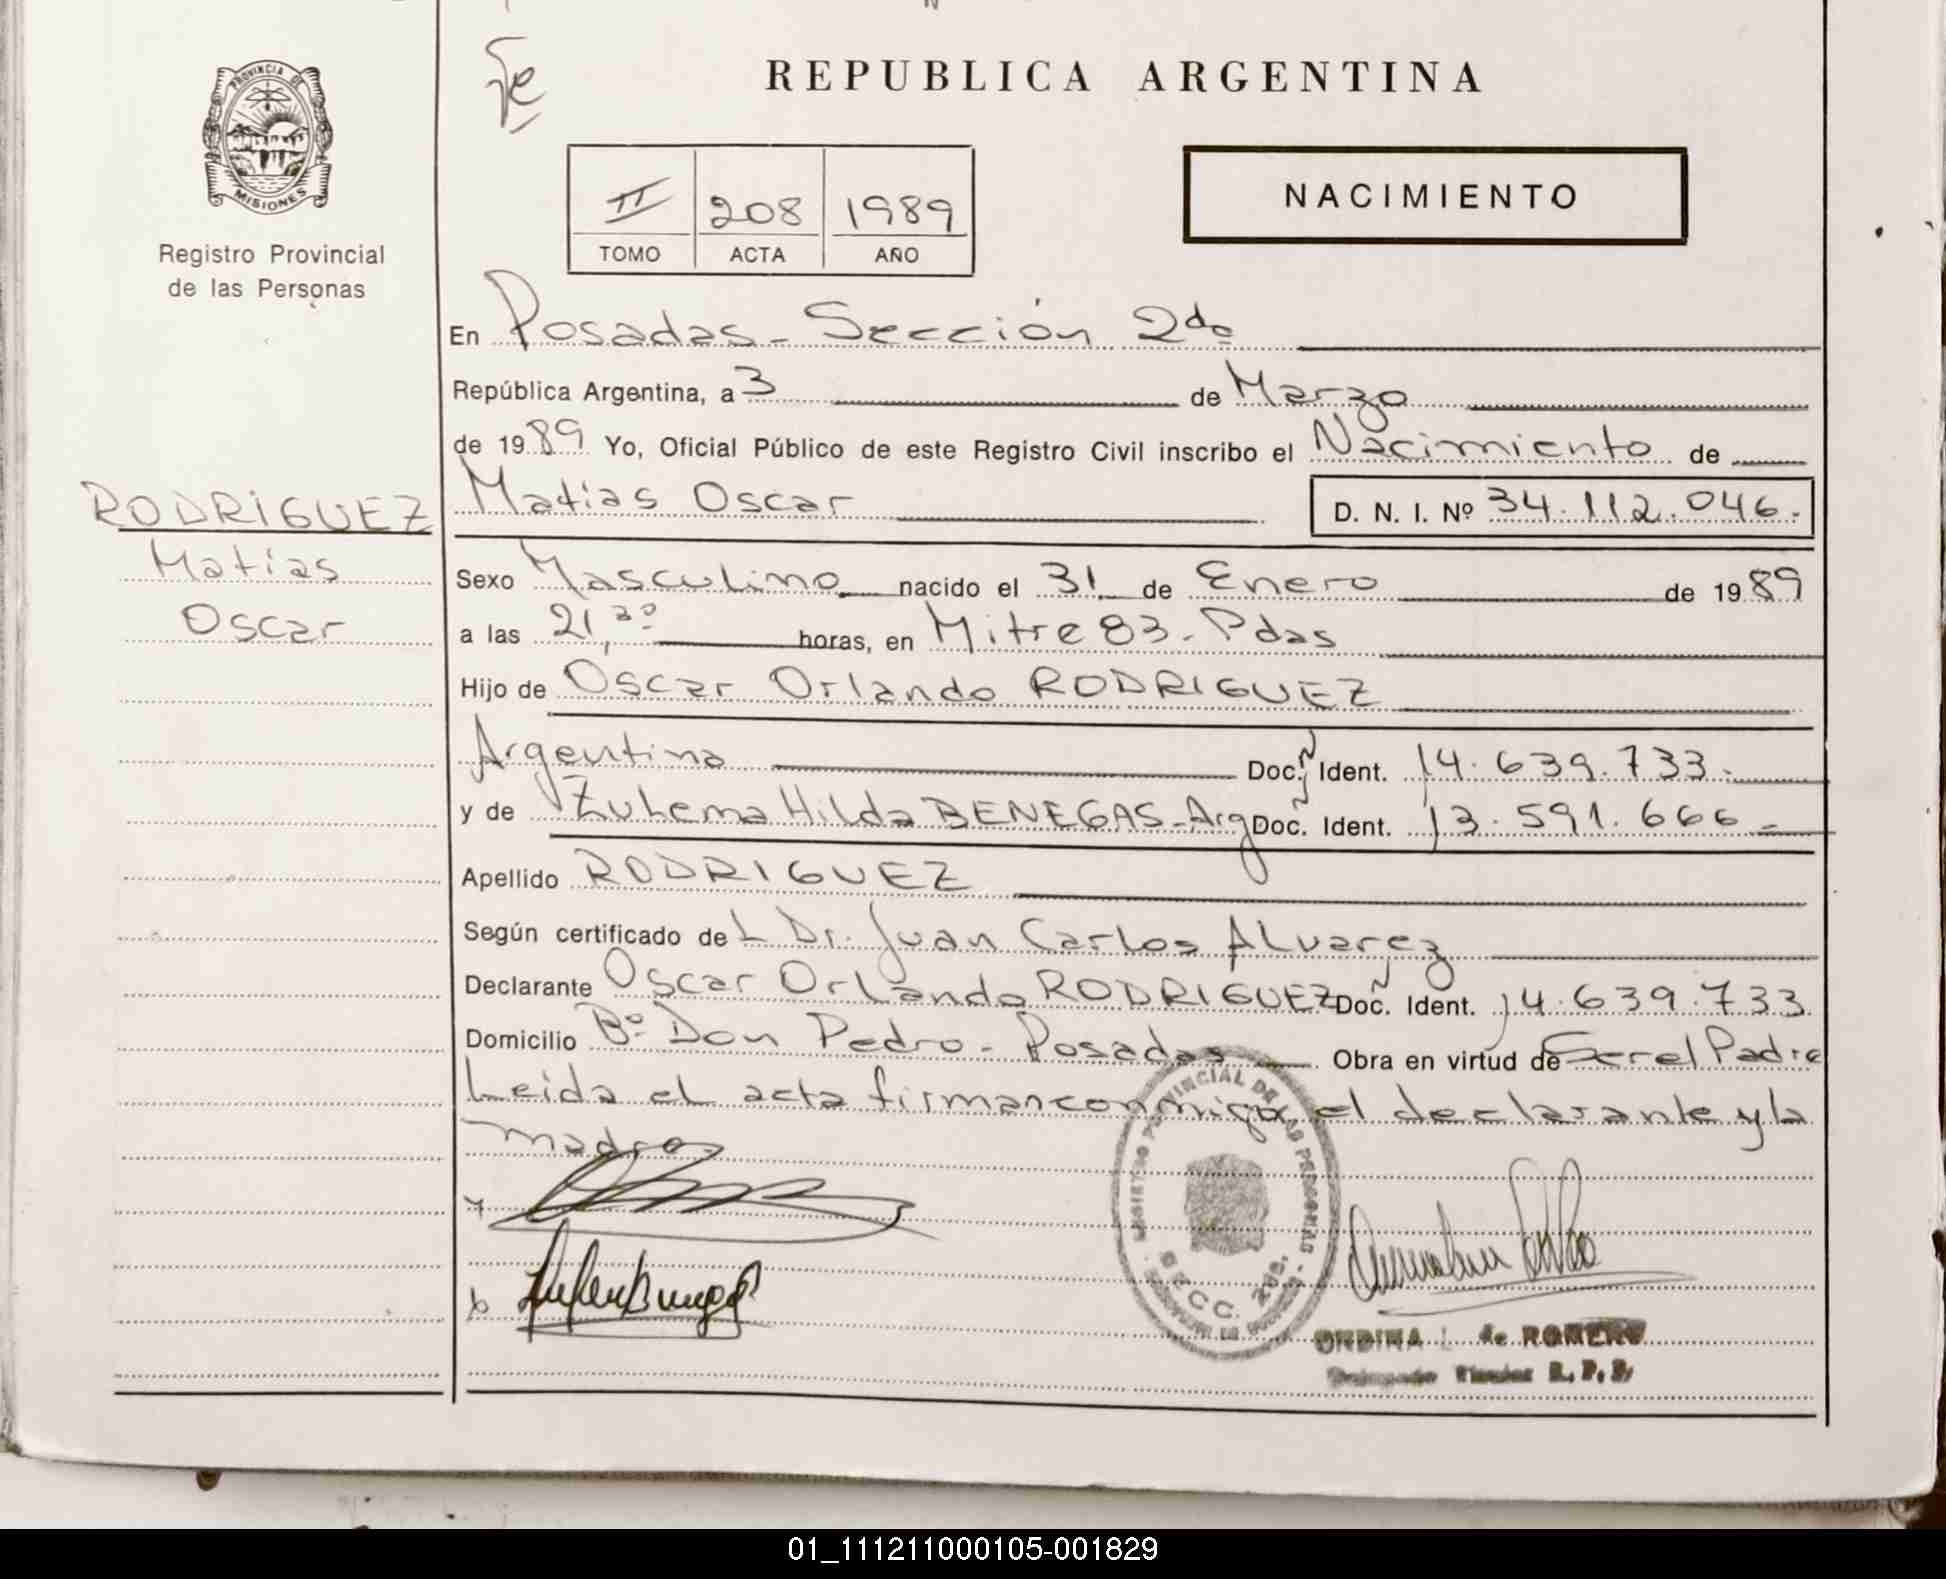 REPUBLICA ARGENTINA
PROVINCIA DE
MISIONES
Registro Provincial
de las Personas
II 208 1989
TOMO ACTA AÑO
NACIMIENTO
En Posadas - Sección 2da
República Argentina, a 3 de Marzo
de 1989 Yo, Oficial Público de este Registro Civil inscribo el Nacimiento de
RODRIGUEZ
Matías
Oscar
Matias Oscar D. N. I. Nº 34.112.046.-
Sexo Masculino nacido el 31 de Enero de 1989
a las 21,30 horas, en Mitre 83 - Pdas
Hijo de Oscar Orlando RODRIGUEZ
Argentina Doc. Ident. 14.639.733.-
y de Zulema Hilda BENEGAS - Arg Doc. Ident. 13.591.666 -
Apellido RODRIGUEZ
Según certificado de L Dr. Juan Carlos Alvarez
Declarante Oscar Orlando RODRIGUEZ Doc. Ident. 14.639.733
Domicilio Bº Don Pedro - Posadas Obra en virtud de Ser el Padre
Leida el acta firman conmigo el declarante y la
madre
REGISTRO PROVINCIAL DE LAS PERSONAS
SECC. 2da.
ONDINA de ROMERO
Titular R. P. P.
01_111211000105-001829